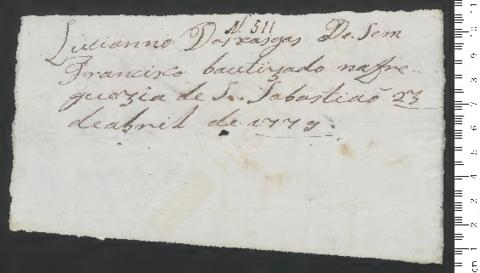 N. 511
Lucianno Dasxagas De Sem
Francisco bautizado nafre
guezia de S. Sabastiaõ 23
deabril de 1779.